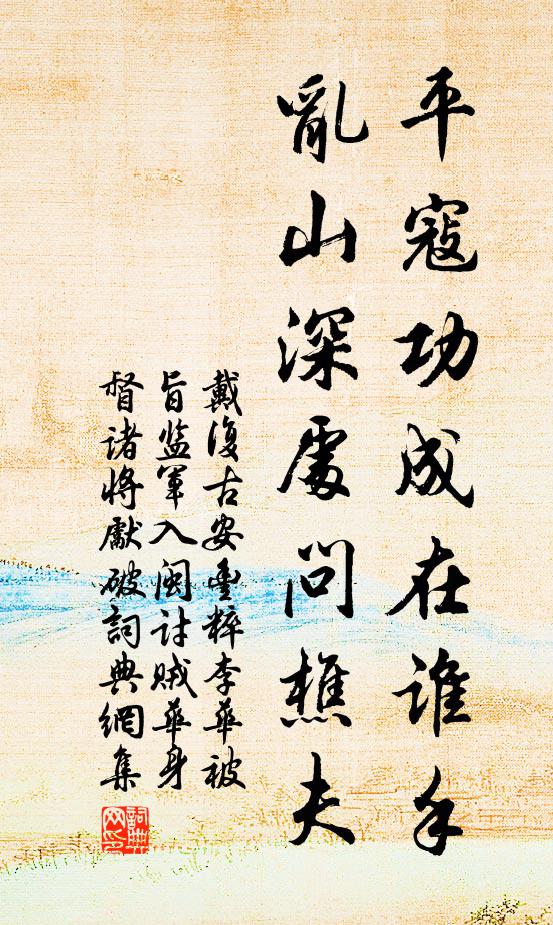 平寇功成在谁手
亂山深處問樵夫
戴復古安豐粹李華被
旨监軍入閩討贼華身
督诸將獻破詞典網集
詞典网印